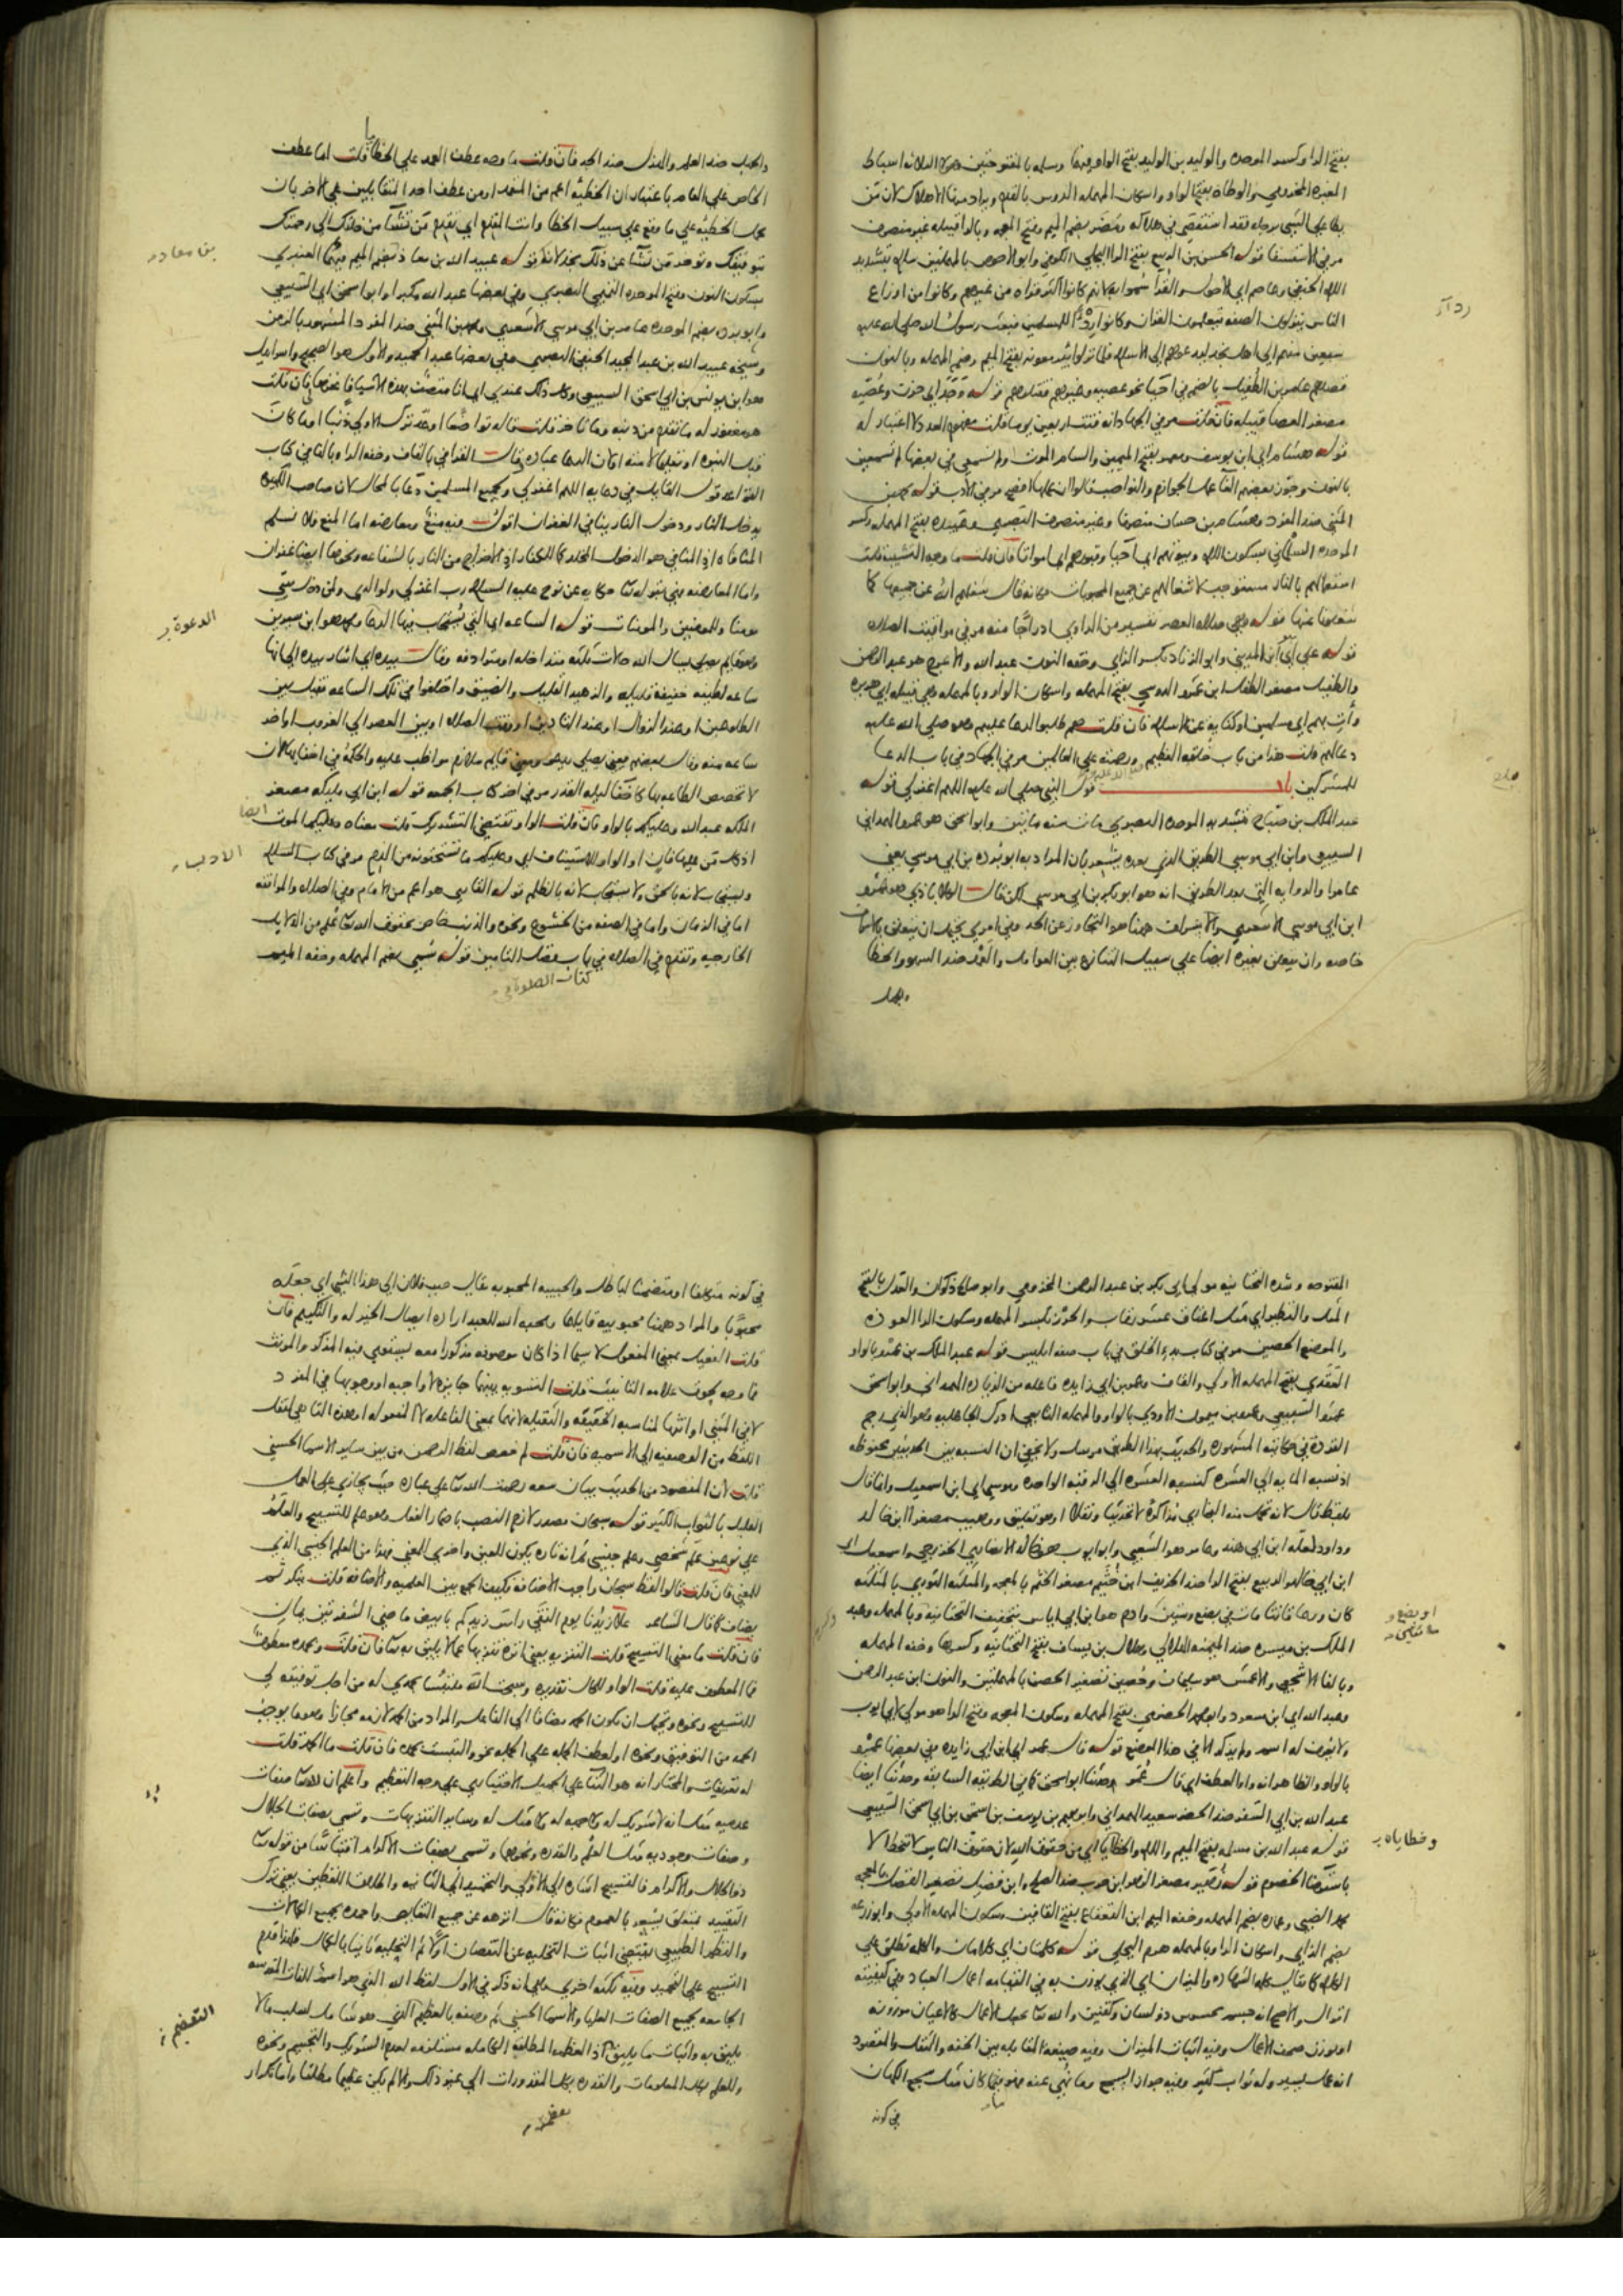 بفتح الراء وكسر الموحدة والوليد بن الوليد بفتح الواو فيهما وسلمة بالمفتوحتين وهؤلاء الثلاثة اسباط
المغيرة المخزومي والوطاة بفتح الواو واسكان المهملة الدوس بالقدم ويراد منها الاهلاك لان من
يطا على الشي برجله فقد استقصى في هلاكه ومضر بضم الميم وفتح المعجمة وبالراء قبيلة غير منصرف
مر في الاستسقا قوله الحسن بن الربيع بفتح الراء البجلي الكوفي وابو الاحوص بالمهملتين سلام بتشديد
اللام الحنفي وعاصم اي الاحول والقرأ سموا به لانهم كانوا اكثر قراة من غيرهم وكانوا من اوزاع
الناس ينزلون الصفة يتعلمون القران وكانوا ردءا للمسلمين فبعث رسول الله صلى الله عليه
سبعين منهم الى اهل نجد ليدعوهم الى الاسلام فلما نزلوا بئر معونة بفتح الميم وضم المهملة وبالنون
قصدهم عامر بن الطفيل بالضم في احيا نحو عصية وغيرهم فقتلوهم قوله وجد اي حزن وعصية
مصغر العصا قبيلة فان قلت مر في الجهاد انه قنت اربعين يوما قلت مفهوم العدد لا اعتبار له
قوله هشام اي ابن يوسف ومعمر بفتح الميمين والسام الموت ولم تسمعي في بعضها لم تسمعين
بالنون وجوز بعضهم الغا عمل الجوازم والنواصب قالوا ان عملها افصح مر في الادب قوله محمد بن
المثنى ضد المفرد وهشام بن حسان منصرفا وغير منصرف البصري وعبيدة بفتح المهملة وكسر
الموحدة السلماني بسكون اللام وبيوتهم اي احيا وقبورهم اي امواتا فان قلت ما وجه التشبيه قلت
اشتغالهم بالنار مستوجب لاشغالهم عن جميع المحبوبات فكانه قال شغلهم الله عن جميعها كما
شغلونا عنها قوله وهي صلاة العصر تفسير من الراوي ادراجا منه مر في مواقيت الصلاة
قوله علي اي ابن المديني وابو الزناد بكسر الزاي وخفة النون عبد الله والاعرج هو عبد الرحمن
والطفيل مصغر الطفل ابن عمرو الدوسي بفتح المهملة واسكان الواو وبالمهملة وهي قبيلة ابي هريرة
وأت بهم اي مسلمين او كناية عن الاسلام فان قلت هم طلبوا الدعا عليهم وهو صلى الله عليه
دعا لهم قلت هذا من باب خلقه العظيم ورحمته على العالمين مر في الجهاد في باب الدعا
للمشركين باب قول النبي صلى الله عليه اللهم اغفر لي قوله
عبد الملك بن صباح بتشديد الموحدة البصري مات سنة مايتين وابو اسحق هو عمرو الهمداني
السبيعي وابن ابي موسى الطريق الذي بعده يشعر بان المراد به ابو بردة بن ابي موسى يعني
عامرا والرواية التي بعد الطريق انه هو ابو بكر بن ابي موسى لكن قال الكلاباذي هو عمرو
ابن ابي موسى الاشعري والاسراف ههنا هو التجاوز عن الحد وفي امري يحتمل ان يتعلق بالاسراف
خاصة وان يتعلق بغيره ايضا على سبيل التنازع بين العوامل والعمد ضد السهو والخطا
والجهل
ردءا
والجهل ضد العلم والهزل ضد الجد فان قلت ما وجه عطف العمد على الخطايا قلت اما عطف
الخاص على العام باعتبار ان الخطيئة اعم من العمد او من عطف احد المتقابلين على الاخر بان
يحمل الخطيئة على ما وقع على سبيل الخطا وانت المقدم اي تقدم من تشا من خلقك الى رحمتك
بتوفيقك وتوخر من تشا عن ذلك بخذلانه قوله عبيد الله بن معاذ بضم الميم فيهما العنبري
بسكون النون وفتح الموحدة التميمي البصري وفي بعضها عبد الله مكبرا وابو اسحق اي السبيعي
وابو بردة بضم الموحدة عامر بن ابي موسى الاشعري ومحمد بن المثنى ضد المفرد المشهور بالزمن
وشيخه عبيد الله بن عبد المجيد الحنفي البصري وفي بعضها عبد الحميد والاول هو الصحيح واسرائيل
هو ابن يونس بن ابي اسحق السبيعي وكل ذلك عندي اي انا متصف بهذه الاشيا فاغفرها لي فان قلت
هو مغفور له ما تقدم من ذنبه وما تاخر قلت قاله تواضعا او عد ترك الاولى ذنبا او ما كان
قبل النبوة او تعليما لامته او كان الدعا عبادة وقال القرافي بالقاف وخفة الراء وبالفاء في كتاب
القواعد قول القايل في دعايه اللهم اغفر لي ولجميع المسلمين دعا بالمحال لان صاحب الكبيرة
يدخل النار ودخول النار ينافي الغفران اقول فيه منع ومعارضة اما المنع فلا نسلم
المنافاة اذ المنافي هو الدخول المخلد كما للكفار اذ الاخراج من النار بالشفاعة ونحوها ايضا غفران
واما المعارضة فهي بقوله تعالى حكاية عن نوح عليه السلام رب اغفر لي ولوالدي ولمن دخل بيتي
مومنا وللمومنين والمومنات قوله الساعة اي التي تستجاب فيها الدعا ومحمد هو ابن سيرين
وهو قايم يصلي يسال الله حالات ثلثة متداخلة او مترادفة وقال بيده اي اشار بيده الى انها
ساعة لطيفة خفيفة قليلة والزهيد القليل والضيق واختلفوا في تلك الساعة فقيل بين
الطلوعين او عند الزوال او عند التاذين او وقت الصلاة او بين العصر الى الغروب او اخر
ساعة منه وقال بعضهم معنى يصلي يدعو ومعنى قايم ملازم مواظب عليه والحكمة في اخفايها لان
لا تخصص الطاعة بها كاخفا ليلة القدر مر في اخر كتاب الجمعة قوله ابن ابي مليكة مصغر
الملكة عبد الله وعليكم بالواو فان قلت الواو تقتضي التشريك قلت معناه وعليكم الموت ايضا
اذ كل من عليها فان او الواو للاستيناف اي وعليكم ما تستحقونه من الذم مر في كتاب السلام
ويستجاب لانه بالحق ولا يستجاب لانه بالظلم قوله القاري هو اعم من الامام وفي الصلاة والموافقة
اما في الزمان واما في الصفة من الخشوع ونحوه والذنب خاص بحقوق الله تعالى علم من الدلايل
الخارجية وتقدم في الصلاة في باب فضل التامين قوله سمي بضم المهملة وخفة الميم
كتاب الصلوة في
بن معاد
الدعوة
الادب
المفتوحة وشدة التحتانية مولى ابي بكر بن عبد الرحمن المخزومي وابو صالح ذكوان والعدل بالفتح
المثل والنظير اي مثل اعتاق عشر رقاب والحرز بكسر المهملة وسكون الراء العوذة
والموضع الحصين مر في كتاب بدء الخلق في باب صفة ابليس قوله عبد الملك بن عمرو بالواو
العقدي بفتح المهملة الاولى والقاف وعمر بن ابي زايدة فاعلة من الزيادة الهمداني وابو اسحق
عمرو السبيعي وعمرو بن ميمون الاودي بالواو والمهملة التابعي ادرك الجاهلية وهو الذي رجم
القردة في حكايته المشهورة والحديث بهذا الطريق مرسل ولا يخفى ان النسبة بين الحديثين محفوظة
اذ نسبة الماية الى العشرة كنسبة العشرة الى الرقبة الواحدة وموسى اي ابن اسمعيل وانما قال
بلفظ قال لانه تحمل منه البخاري مذاكرة لا تحديثا ونقلا او هو تعليق ووهيب مصغرا ابن خالد
وداود لعله ابن ابي هند وعامر هو الشعبي وابو ايوب هو خالد الانصاري الخزرجي واسمعيل اي
ابن ابي خالد والربيع بفتح الراء ضد الخريف ابن خثيم مصغر الخثم بالمعجمة والمثلثة الثوري بالمثلثة
كان ورعا قانتا مات في بضع وستين وادم هو ابن ابي اياس بتخفيف التحتانية وبالمهملة وعبد
الملك بن ميسرة ضد الميمنة الهلالي وهلال بن يساف بفتح التحتانية وكسرها وخفة المهملة
وبالفاء الاشجعي والاعمش هو سليمان وحصين تصغير الحصن بالمهملتين والنون ابن عبد الرحمن
وعبد الله اي ابن مسعود وابو محمد الحضرمي بفتح المهملة وسكون المعجمة وفتح الراء هو مولى لابي ايوب
ولا يعرف له اسم ولم يذكر الا في هذا الموضع قوله قال عمر اي ابن ابي زايدة في بعضها عمرو
بالواو والظاهر انه واو العطف اي قال عمر وحدثنا ابو اسحق كما في الطريقة السابقة وحدثنا ايضا
عبد الله بن ابي السفر ضد الحضر سعيد الهمداني وابراهيم بن يوسف بن اسحق بن ابي اسحق السبيعي
قوله عبد الله بن مسلمة بفتح الميم واللام والخطايا اي من حقوق الله لان حقوق الناس لا تنحط الا
باسترضا الخصوم قوله زهير مصغر الزهر ابن حرب ضد الصلح وابن فضيل تصغير الفضل بالمعجمة
محمد الضبي وعمارة بضم المهملة وخفة الميم ابن القعقاع بفتح القافين وسكون المهملة الاولى وابو زرعة
بضم الزاي واسكان الراء وبالمهملة هرم البجلي قوله كلمتان اي كلامان والكلمة تطلق على
الكلام كما يقال كلمة الشهادة والميزان اي الذي يوزن به في القيامة اعمال العباد وفي كيفيته
اقوال والاصح انه جسم محسوس ذو لسان وكفتين والله تعالى يجعل الاعمال كالاعيان موزونة
او يوزن صحف الاعمال وفيه اثبات الميزان وفيه صنيعة المقابلة بين الخفة والثقل والمقصود
انه عمل يسير وله ثواب كثير وفيه جواز السجع وما نهي عنه فهو فيما كان مثل سجع الكهان
في كونه
وخطاياه
في كونه متكلفا او متضمنا لباطل والحبيبة المحبوبة يقال حبب فلان الى هذا الشي اي جعله
محبوبا والمراد ههنا محبوبية قايلها ومحبة الله للعبد ارادة ايصال الخير له والتكريم فان
قلت الفعيل بمعنى المفعول لا سيما اذا كان موصوفه مذكورا معه يستوي فيه المذكر والمونث
فما وجه لحوق علامة التانيث قلت التسوية بينهما جايزة لا واجبة او وجوبها في المفرد
لا في المثنى او انثها لمناسبة الخفيفة والثقيلة لانهما بمعنى الفاعلة لا المفعولة او هذه التا هي لنقل
اللفظ من الوصفية الى الاسمية فان قلت لم خصص لفظ الرحمن من بين ساير الاسما الحسنى
قلت لان المقصود من الحديث بيان سعة رحمة الله تعالى على عباده حيث يجازي على العمل
القليل بالثواب الكثير قوله سبحان مصدر لازم النصب باضمار الفعل وهو علم للتسبيح والعلم
على نوعين علم شخصي وعلم جنسي ثم انه تارة يكون للعين واخرى للمعنى فهذا من العلم الجنسي الذي
للمعنى فان قلت قالوا لفظ سبحان واجب الاضافة فكيف الجمع بين العلمية والاضافة قلت ينكر ثم
يضاف كما قال الشاعر علا زيدنا يوم النقى راس زيدكم بابيض ماضي الشفرتين يمان
فان قلت ما معنى التسبيح قلت التنزيه يعني انزه تنزيها عما لا يليق به تعالى فان قلت وبحمده معطوف
فما المعطوف عليه قلت الواو للحال تقديره وسبحت الله ملتبسا بحمدي له من اجل توفيقه لي
للتسبيح ونحوه ويحتمل ان يكون الحمد مضافا الى الفاعل والمراد من الحمد لازمه مجازا وهو ما يوجب
الحمد من التوفيق ونحوه او لعطف الجملة على الجملة نحو والتبست بحمده فان قلت ما الحمد قلت
له تعريفات والمختار انه هو الثنا على الجميل الاختياري على وجه التعظيم واعلم ان لله تعالى صفات
عدمية مثل انه لا شريك له ولا جهة له ولا مثل له وساير التنزيهات وتسمى بصفات الجلال
وصفات وجودية مثل العلم والقدرة ونحوها وتسمى بصفات الاكرام اقتباسا من قوله تعالى
ذو الجلال والاكرام فالتسبيح اشارة الى الاولى والتحميد الى الثانية واطلاق اللفظين يعني ترك
التقييد بمتعلق يشعر بالعموم فكانه قال انزهه عن جميع النقايص واحمده بجميع الكمالات
والنظم الطبيعي يقتضي اثبات التخلية عن النقصان اولا ثم التحلية ثانيا بالكمال فلهذا قدم
التسبيح على التحميد وفيه نكتة اخرى وهي انه ذكر في الاول لفظ الله الذي هو اسم للذات المقدسة
الجامعة لجميع الصفات العليا والاسما الحسنى ثم وصفه بالعظيم الذي هو شامل لسلب ما لا
يليق به واثبات ما يليق اذ العظمة المطلقة الكاملة مستلزمة لعدم الشريك والتجسيم ونحوه
وللعلم بكل المعلومات والقدرة بكل المقدورات الى غير ذلك والا لم يكن عظيما مطلقا واما تكرار